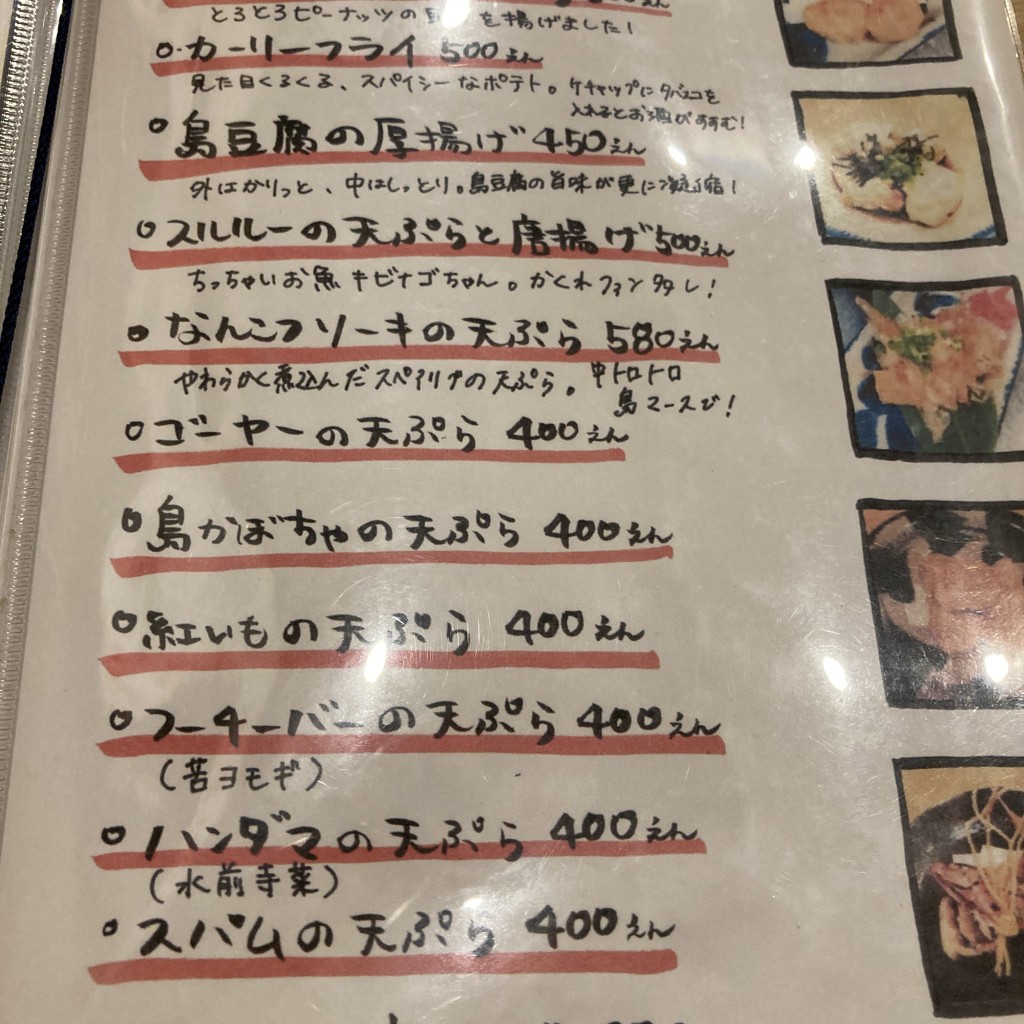 とろとろピーナッツの を揚げました!
カーリーフライ 500えん
見た目くるくる、スパイシーなポテト。ケチャップにタバスコを
入れるとお酒がすすむ!
島豆腐の厚揚げ 450えん
外はかりっと、中はしっとり。島豆腐の旨味が更に凝縮!
スルルーの天ぷらと唐揚げ 500えん
ちっちゃいお魚キビナゴちゃん。かくれファン多し!
なんこつソーキの天ぷら 580えん
やわらかく煮込んだスペアリブの天ぷら。中トロトロ
島マースで!
ゴーヤーの天ぷら 400えん
島かぼちゃの天ぷら 400えん
紅いもの天ぷら 400えん
フーチーバーの天ぷら 400えん
(苦ヨモギ)
ハンダマの天ぷら 400えん
(水前寺菜)
スパムの天ぷら 400えん